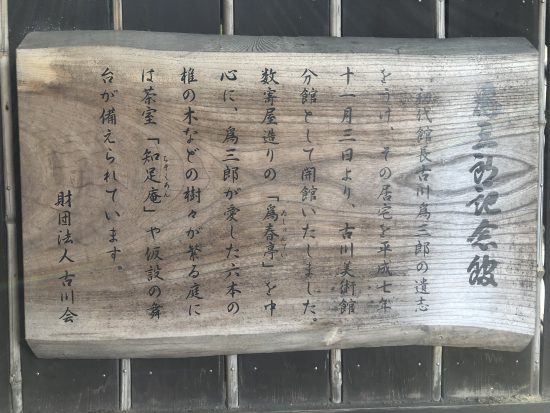 爲三郎記念館
初代館長古川爲三郎の遺志
をうけ、その居宅を平成七年
十一月三日より、古川美術館
分館として開館いたしました。
数寄屋造りの「爲春亭」を中
いしゅんてい
心に、爲三郎が愛した六本の
椎の木などの樹々が繁る庭に
は茶室「知足庵」や仮設の舞
ちそくあん
台が備えられています。
財団法人古川会